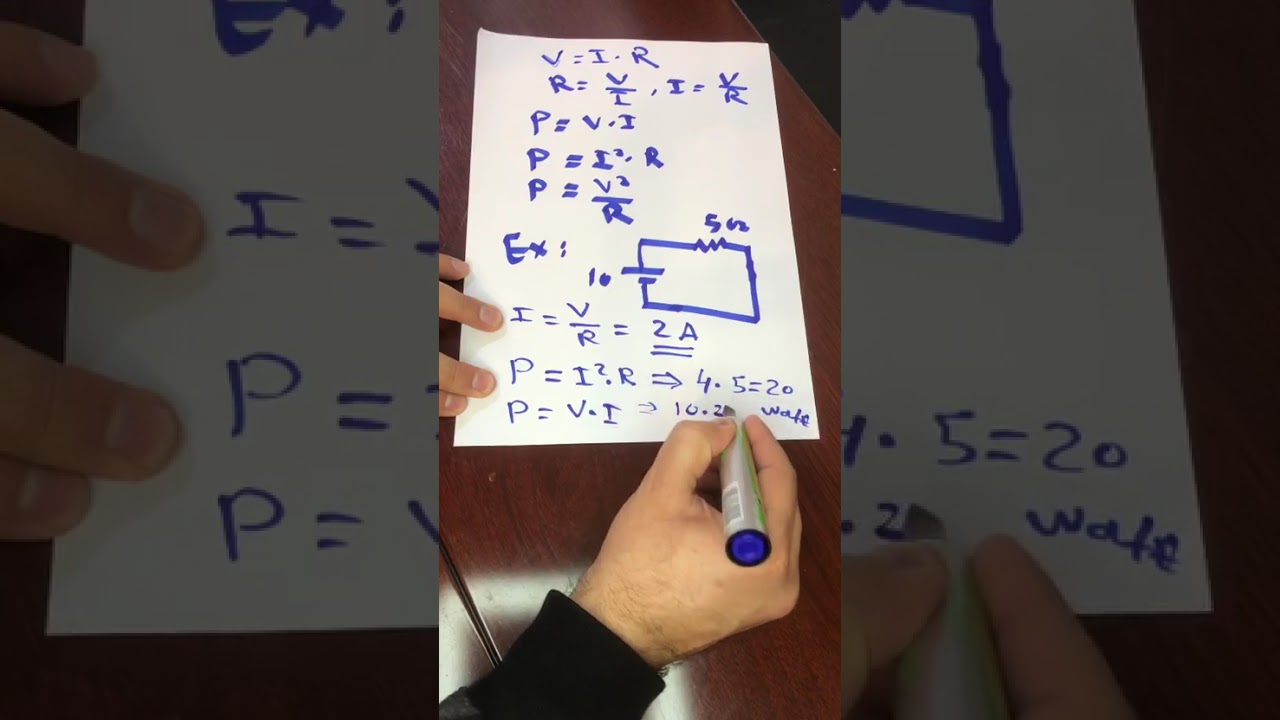 V = I · R
R = V/I , I = V/R
P = V · I
P = I² · R
P = V²/R
5Ω
Ex :
10
I = V/R = 2 A
P = I² · R ⇒ 4 · 5 = 20
P = V · I ⇒ 10 · 2 watt